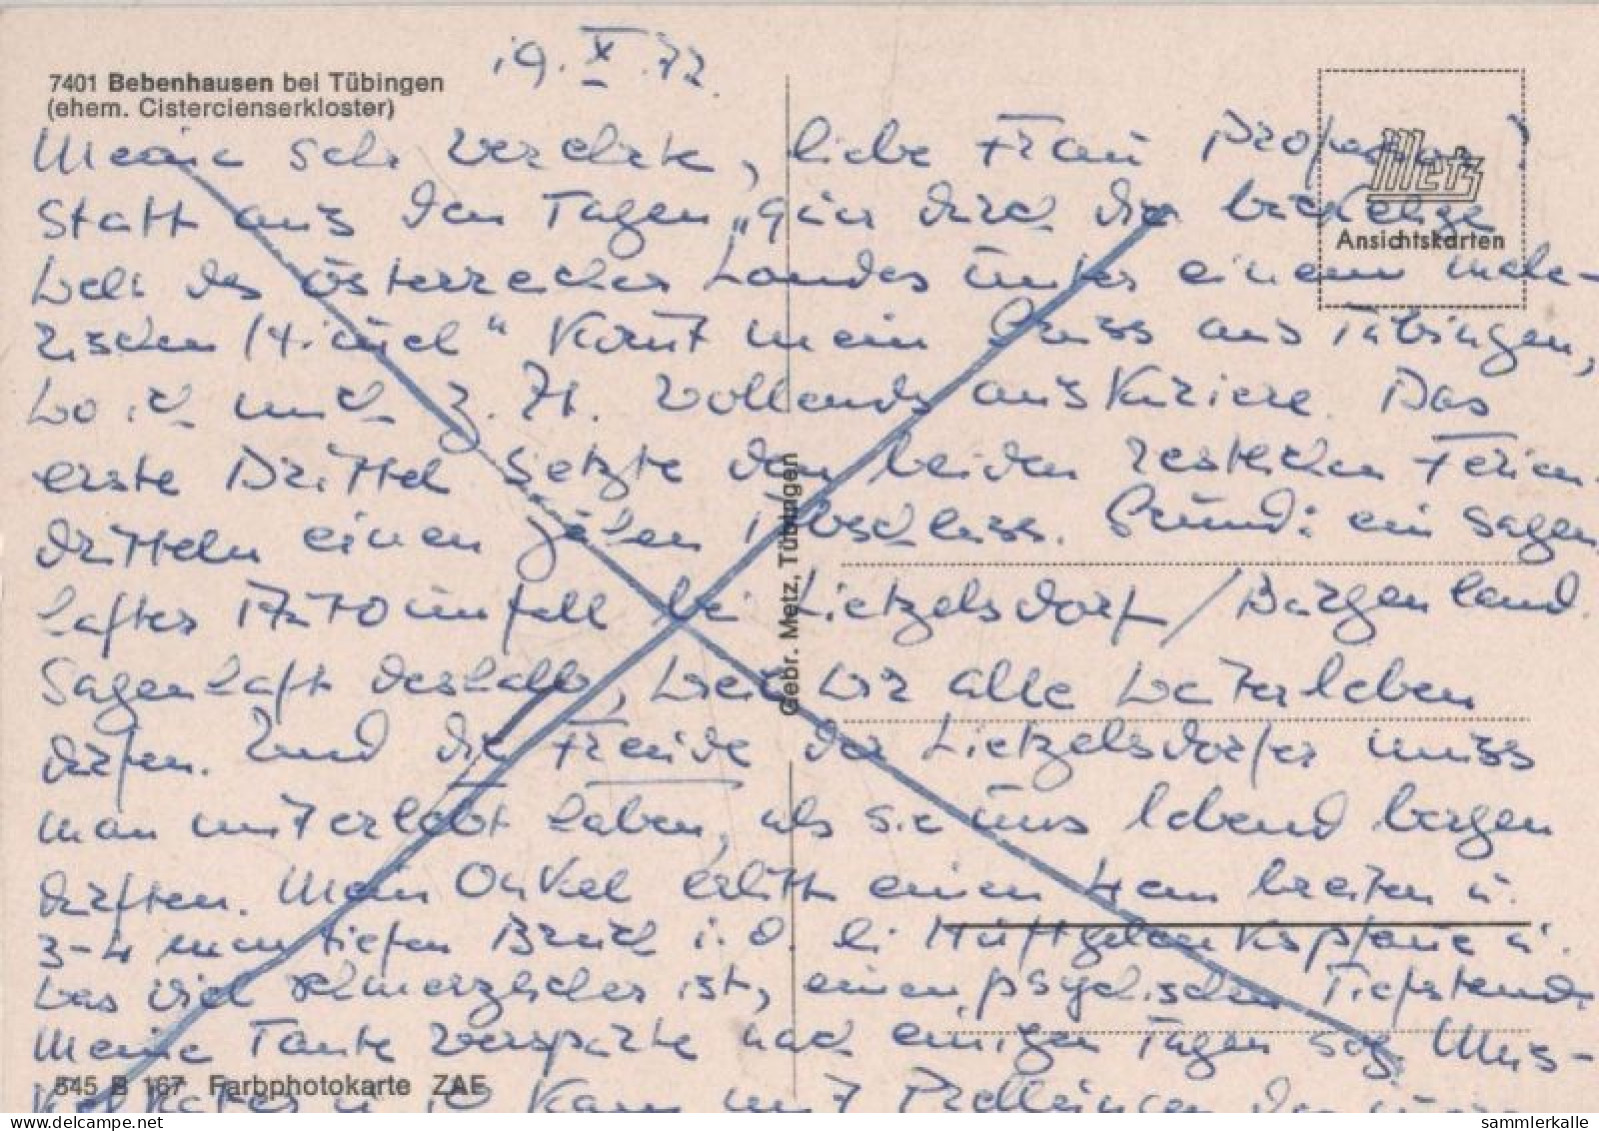 19. X. 72.
7401 Bebenhausen bei Tübingen
(ehem. Cistercienserkloster)
Meine sehr verehrte, liebe Frau Professor!
Metz
Statt aus den Tagen „quer durch die
Ansichtskarten
Welt des österreicher Landes unter einem male-
rischen Himmel" kommt mein Gruss aus Tübingen,
wo ich mich z. Zt. vollends auskuriere. Das
erste Drittel setzte den beiden restlichen Ferien-
dritteln einen jähen Abschluss. Grund: ein sagen-
hafter Autounfall bei Lietzelsdorf/Burgenland.
Sagenhaft deshalb, weil wir alle weiterleben
dürfen. Und die Freude der Lietzelsdorfer muss
man miterlebt haben, als sie uns lebend bergen
durften. Mein Onkel erlitt einen 4 cm breiten u.
3-4 mm tiefen Bruch i. d. li Hüftgelenkspfanne u.
was viel schmerzlicher ist, einen psychischen Tiefstand.
Meine Tante verspürte nach einigen Tagen sog. Mus-
kelkater u. ich kam mit Prellungen
Gebr. Metz, Tübingen
545 B 167 Farbphotokarte ZAE
delcampe.net
sammlerkalle